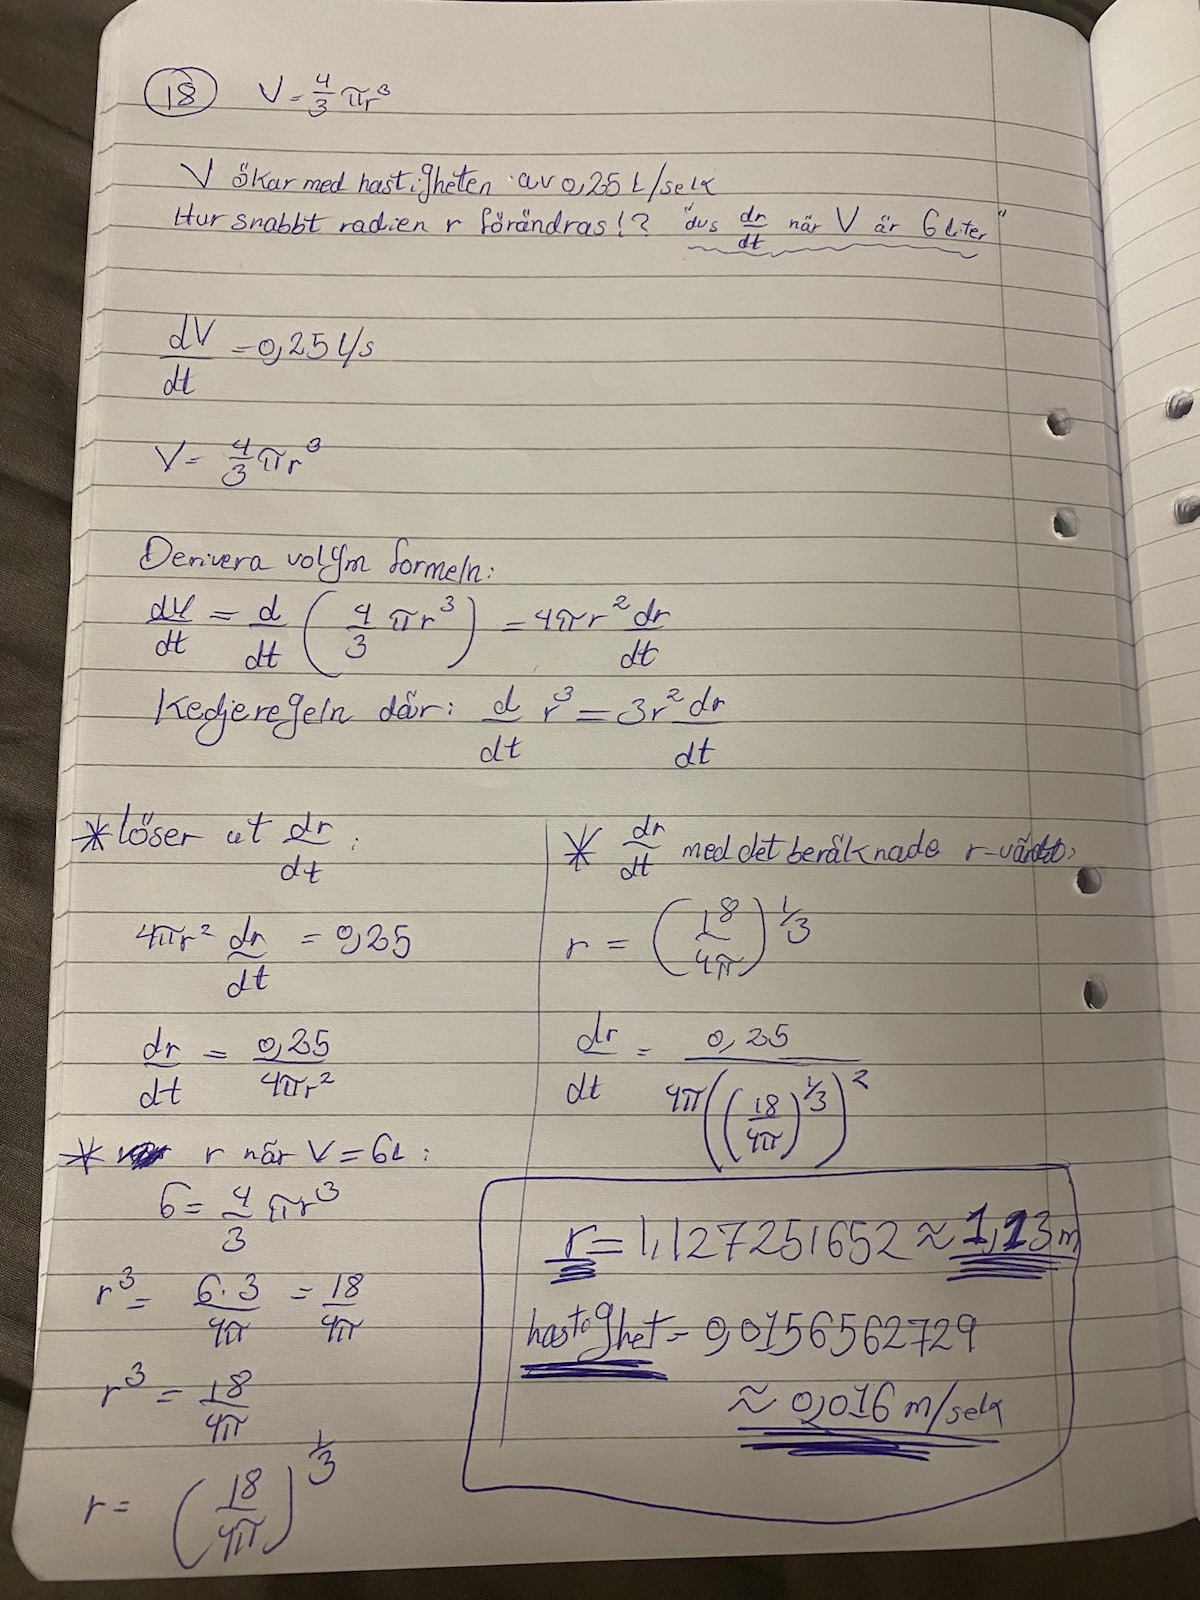 18 V = 4/3 πr³
V ökar med hastigheten av 0,25 L/sek
Hur snabbt radien r förändras!? "dvs dr/dt när V är 6 liter"
dV/dt = 0,25 l/s
V = 4/3 πr³
Derivera volym formeln:
dV/dt = d/dt (4/3 πr³) = 4πr² dr/dt
Kedjeregeln där: d/dt r³ = 3r² dr/dt
* löser ut dr/dt :
4πr² dr/dt = 0,25
dr/dt = 0,25/4πr²
* r när V = 6L :
6 = 4/3 πr³
r³ = 6·3/4π = 18/4π
r³ = 18/4π
r = (18/4π)^1/3
* dr/dt med det beräknade r-värdet:
r = (18/4π)^1/3
dr/dt = 0,25/4π((18/4π)^1/3)²
r = 1,127251652 ≈ 1,13 m
hastighet = 0,0156562729
≈ 0,016 m/sek